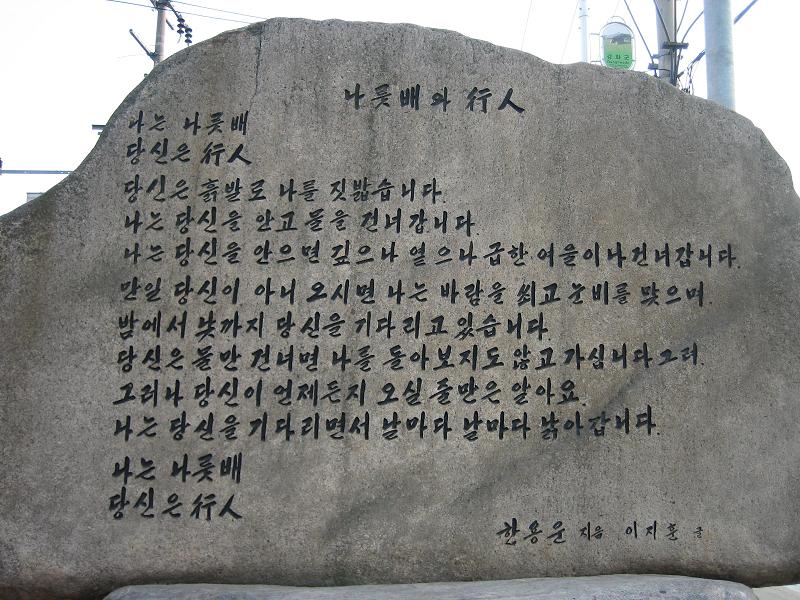 나룻배와 行人
나는 나룻배
당신은 行人
당신은 흙발로 나를 짓밟습니다.
나는 당신을 안고 물을 건너갑니다.
나는 당신을 안으면 깊으나 옅으나 급한 여울이나 건너갑니다.
만일 당신이 아니 오시면 나는 바람을 쐬고 눈비를 맞으며.
밤에서 낮까지 당신을 기다리고 있습니다.
당신은 물만 건너면 나를 돌아보지도 않고 가십니다 그려.
그러나 당신이 언제든지 오실 줄만은 알아요.
나는 당신을 기다리면서 날마다 날마다 낡아갑니다.
나는 나룻배
당신은 行人
한용운 지음 이지훈 글
강화군